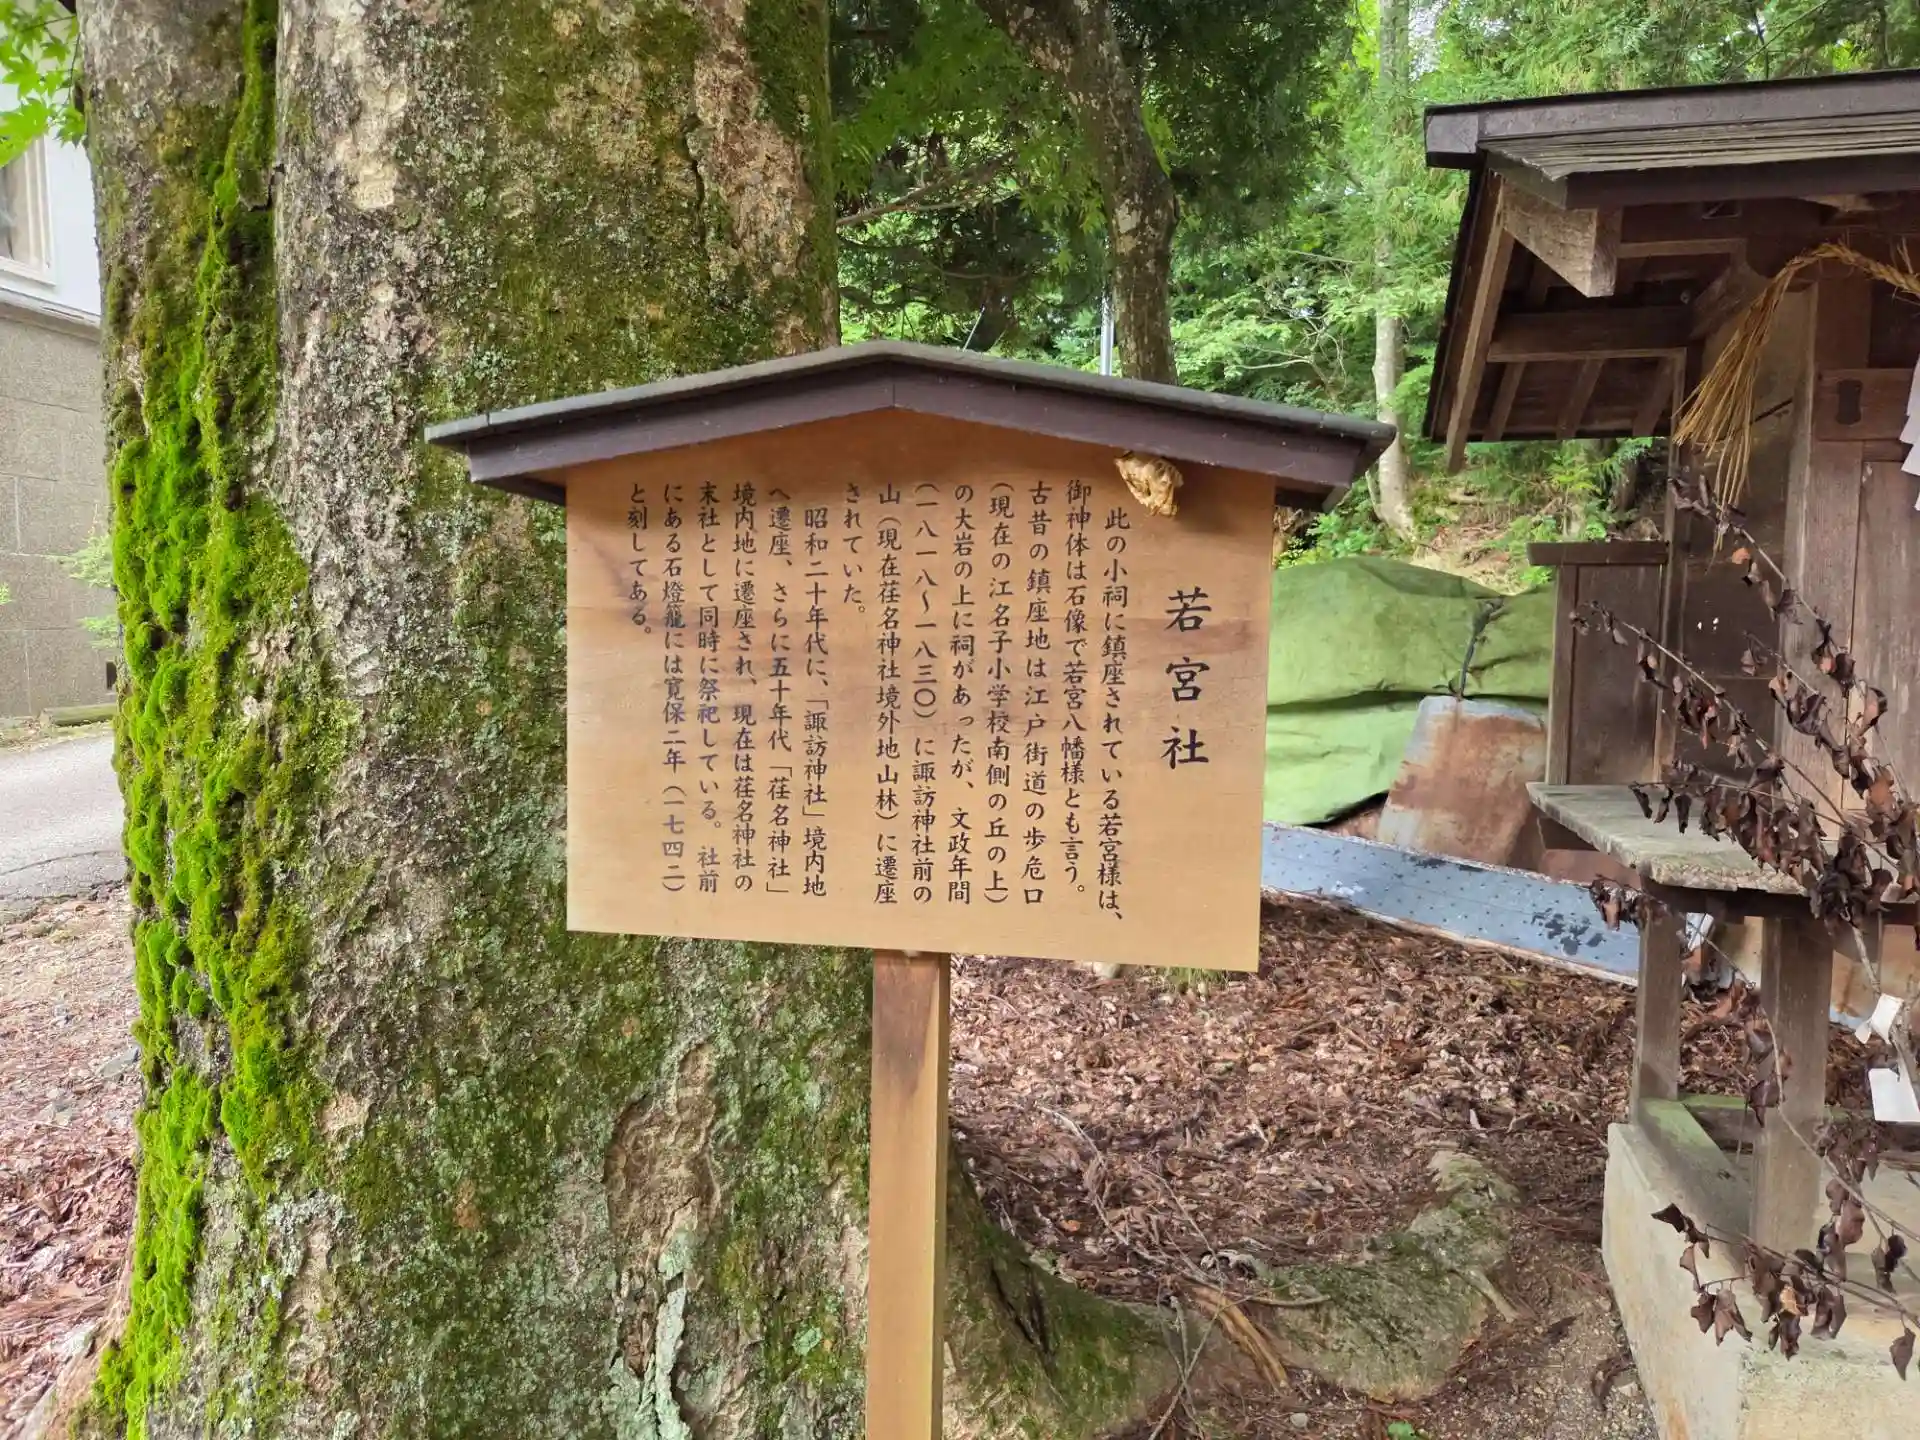 若宮社
此の小祠に鎮座されている若宮様は、
御神体は石像で若宮八幡様とも言う。
古昔の鎮座地は江戸街道の歩危口
（現在の江名子小学校南側の丘の上）
の大岩の上に祠があったが、文政年間
（一八一八〜一八三〇）に諏訪神社前の
山（現在荏名神社境外地山林）に遷座
されていた。
昭和二十年代に、「諏訪神社」境内地
へ遷座、さらに五十年代「荏名神社」
境内地に遷座され、現在は荏名神社の
末社として同時に祭祀している。社前
にある石燈籠には寛保二年（一七四二）
と刻してある。